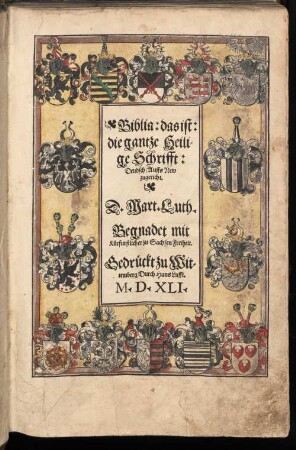 Biblia: das ist:
die gantze Heili-
ge Schrifft:
Deudsch / Auffs New
zugericht.
D. Mart. Luth.
Begnadet mit
Kürfürstlicher zu Sachsen Freiheit.
Gedrückt zu Wit-
temberg / Durch Hans Lufft.
M. D. XLI.